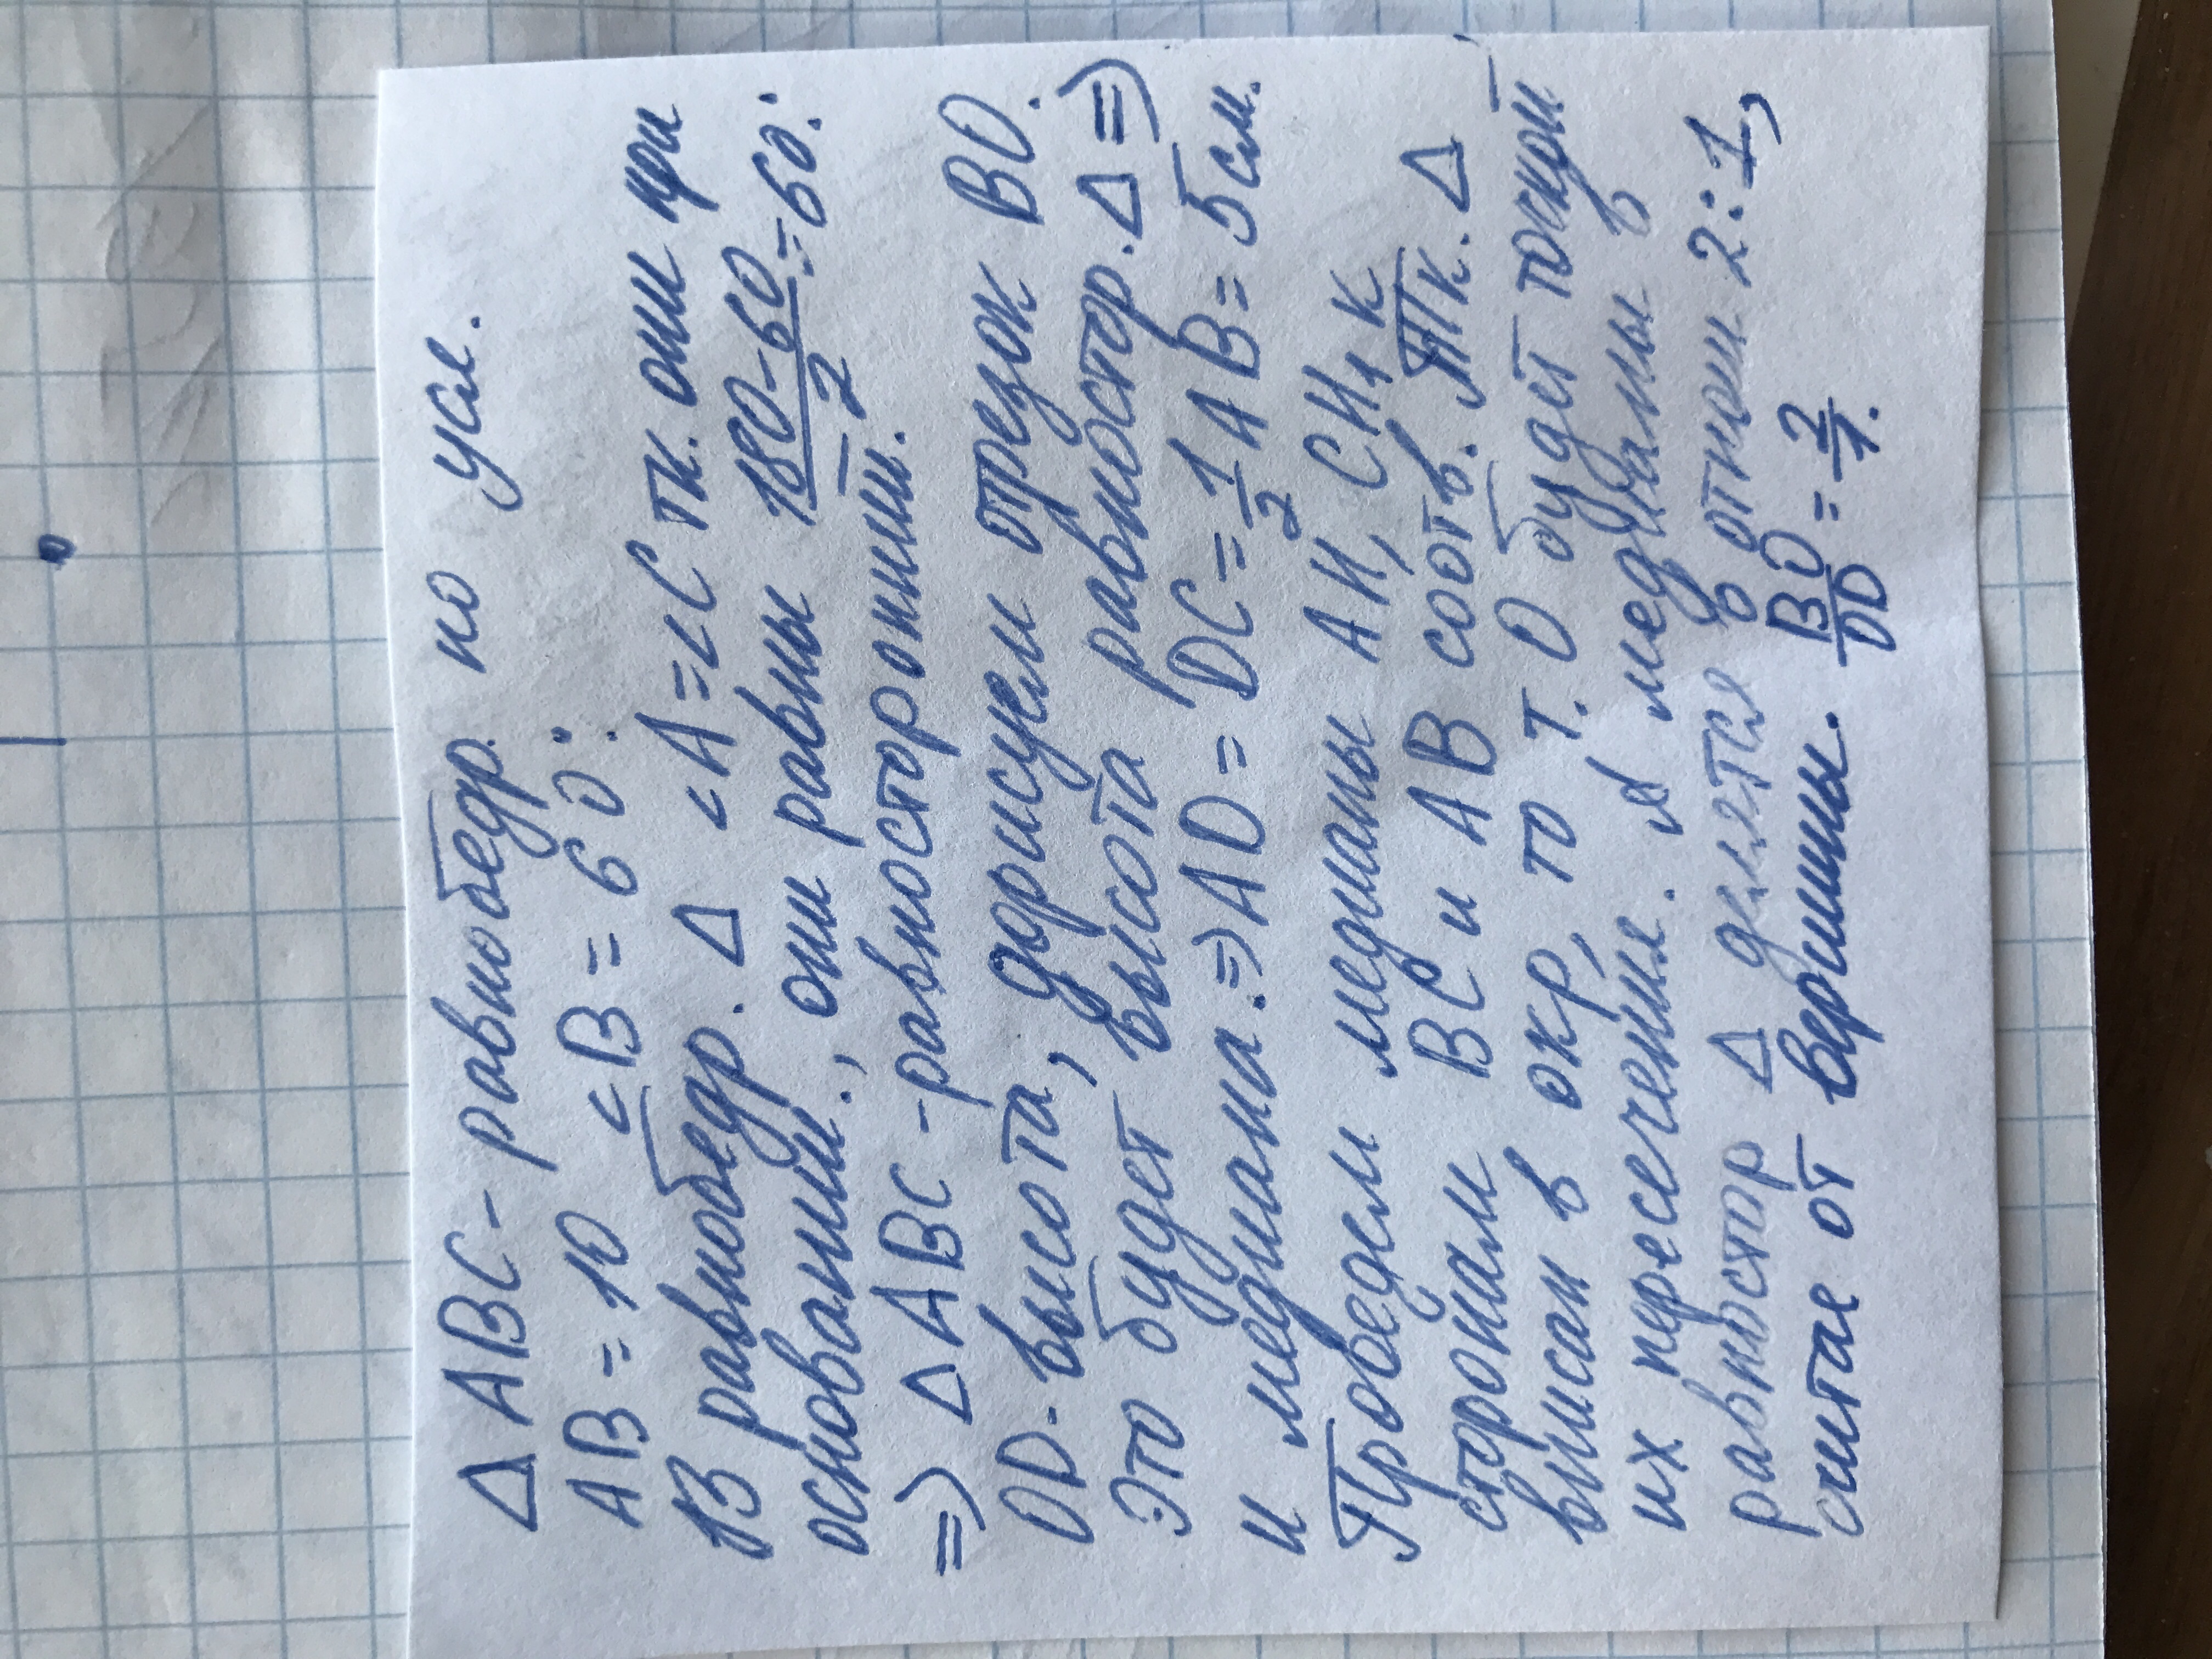 Δ ABC - равнобедр. по усл.
AB = 10 ∠B = 60°.
В равнобедр. Δ ∠A = ∠C тк. они при
основании., они равны (180-60)/2 = 60°.
⇒ Δ ABC - равносторонний.
OD - высота, дорисуем отрезок BO.
Это будет высота равностор. Δ ⇒
и медиана. ⇒ AD = DC = 1/2 AB = 5 см.
Проведем медианы AH, CH₁ к
сторонам BC и AB соотв. Тк. Δ
вписан в окр, то т. O будет точкой
их пересечения. А медианы в
равностор Δ делятся в отнош 2:1,
считае от вершины. BO/OD = 2/1.